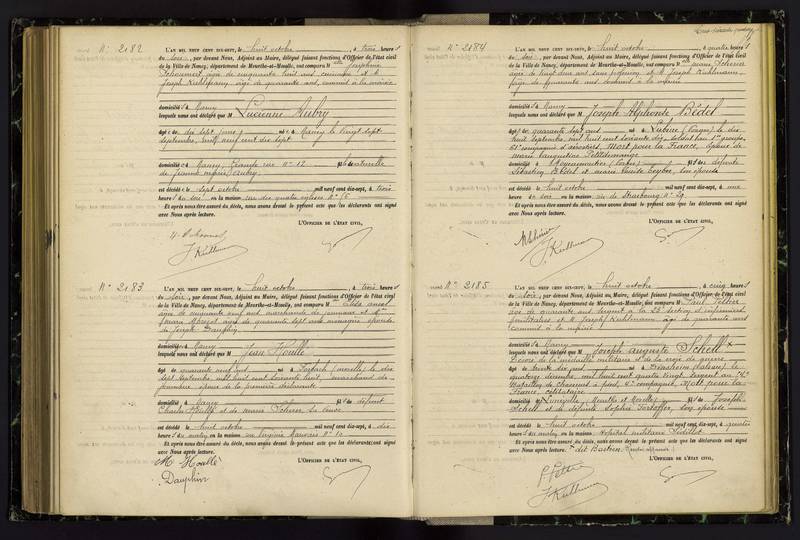 N° 2182
L'AN MIL NEUF CENT DIX-SEPT, le huit octobre, à trois heures
du soir, par devant Nous, Adjoint au Maire, délégué faisant fonctions d'Officier de l'état civil
de la Ville de Nancy, département de Meurthe-et-Moselle, ont comparu M
âgée de cinquante huit ans et M
Joseph Kuhlmann, âgé de quarante ans, commis à la mairie
domicilié à Nancy
lesquels nous ont déclaré que M Lucienne Aubry
âgée de dix sept jours née à Nancy le vingt sept
septembre mil neuf cent dix sept
domiciliée à Nancy, Grande rue N° 12
de Jeanne Marie Aubry
est décédée le sept octobre mil neuf cent dix-sept, à trois
heures du soir, en la maison rue des quatre églises N°
Et après nous être assuré du décès, nous avons dressé le présent acte que les déclarants ont signé
avec Nous après lecture.
L'OFFICIER DE L'ÉTAT CIVIL,
J Kuhlmann
N° 2183
L'AN MIL NEUF CENT DIX-SEPT, le huit octobre, à trois heures
du soir, par devant Nous, Adjoint au Maire, délégué faisant fonctions d'Officier de l'état civil
de la Ville de Nancy, département de Meurthe-et-Moselle, ont comparu M
âgée de cinquante neuf ans marchande de journaux et
de quarante sept ans ménagère épouse
de Joseph Dauphin
domiciliées à Nancy
lesquels nous ont déclaré que M Jean Houllé
âgé de quarante neuf ans né à Forbach (Moselle) le dix
sept septembre mil huit cent soixante huit, marchand de
journaux époux de la première déclarante
domicilié à Nancy fils de défunt
Charles Houllé et de Marie Scherer sa veuve
est décédé le huit octobre mil neuf cent dix-sept, à dix
heures du matin, en la maison N° 10
Et après nous être assuré du décès, nous avons dressé le présent acte que les déclarants ont signé
avec Nous après lecture.
L'OFFICIER DE L'ÉTAT CIVIL,
M Houllé
Dauphin
N° 2184
L'AN MIL NEUF CENT DIX-SEPT, le huit octobre, à quatre heures
du soir, par devant Nous, Adjoint au Maire, délégué faisant fonctions d'Officier de l'état civil
de la Ville de Nancy, département de Meurthe-et-Moselle, ont comparu M Marie Scherer
âgée de vingt deux ans sans profession et M Joseph Kuhlmann,
âgé de quarante ans commis à la mairie
domiciliés à Nancy
lesquels nous ont déclaré que M Joseph Alphonse Bédel
âgé de quarante sept ans né à Lubine (Vosges) le dix
huit septembre mil huit cent soixante dix, soldat au 1er groupe,
compagnie d'aérostiers, Mort pour la France, époux de
Marie Augustine Petitdemange
domicilié à Moyenmoutier (Vosges) fils des défunts
Sébastien Bédel et Marie son épouse
est décédé le huit octobre mil neuf cent dix-sept, à une
heure du soir, en la maison rue de Strasbourg N° 29
Et après nous être assuré du décès, nous avons dressé le présent acte que les déclarants ont signé
avec Nous après lecture.
L'OFFICIER DE L'ÉTAT CIVIL,
M Scherer
J Kuhlmann
N° 2185
L'AN MIL NEUF CENT DIX-SEPT, le huit octobre, à cinq heures
du soir, par devant Nous, Adjoint au Maire, délégué faisant fonctions d'Officier de l'état civil
de la Ville de Nancy, département de Meurthe-et-Moselle, ont comparu M Paul
âgé de quarante ans sergent à la 23e section d'infirmiers
militaires et M Joseph Kuhlmann âgé de quarante ans
commis à la mairie
domiciliés à Nancy
lesquels nous ont déclaré que M Joseph Auguste Schell ×
Décoré de la médaille militaire et de la croix de guerre
âgé de trente six ans né à Ensisheim (Alsace) le
quatorze décembre mil huit cent quatre vingt, sergent au
Bataillon de Chasseurs à pied, 4e compagnie, Mort pour la
France, célibataire
domicilié à Lunéville (Meurthe et Moselle) fils de Joseph
Schell et de défunte Sophie son épouse
est décédé le huit octobre mil neuf cent dix-sept, à quatre
heures du matin, en la maison Hôpital militaire Sédillot
Et après nous être assuré du décès, nous avons dressé le présent acte que les déclarants ont signé
avec Nous après lecture. × dit Bastien
L'OFFICIER DE L'ÉTAT CIVIL,
J Kuhlmann